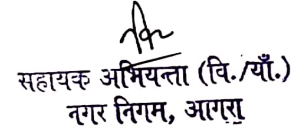 सहायक अभियन्ता (वि./याँ.)
नगर निगम, आगरा